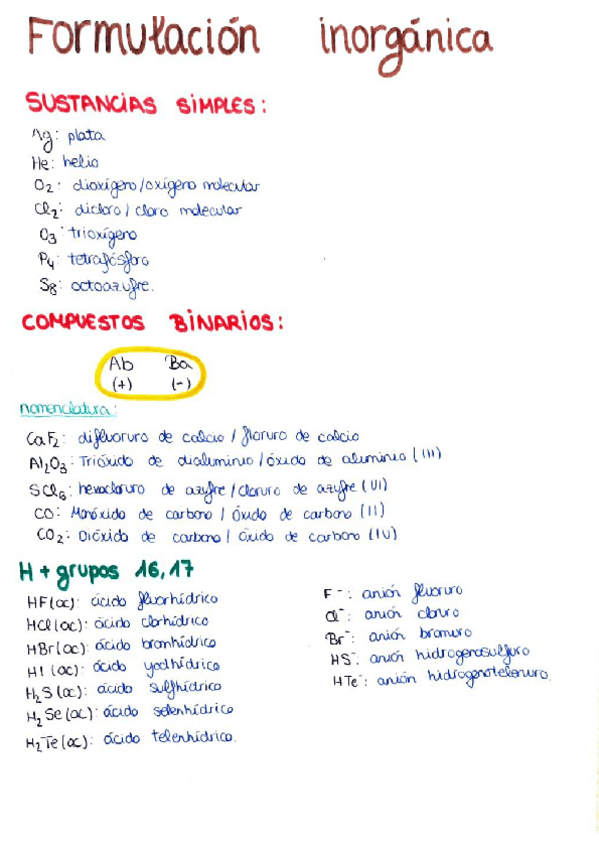 Formulación inorgánica
SUSTANCIAS SIMPLES:
Ag: plata
He: helio
O₂: dioxígeno/oxígeno molecular
Cl₂: dicloro/cloro molecular
O₃: trioxígeno
P₄: tetrafósforo
S₈: octoazufre.
COMPUESTOS BINARIOS:
Ab Ba
(+) (-)
nomenclatura:
CaF₂: difluoruro de calcio / floruro de calcio
Al₂O₃: Trióxido de dialuminio / óxido de aluminio (III)
SCl₆: hexacloruro de azufre / Cloruro de azufre (VI)
CO: Monóxido de carbono / Óxido de carbono (II)
CO₂: Dióxido de carbono / Óxido de carbono (IV)
H + grupos 16,17
HF(ac): ácido fluorhídrico
HCl(ac): ácido clorhídrico
HBr(ac): ácido bromhídrico
HI (ac): ácido yodhídrico
H₂S(ac): ácido sulfhídrico
H₂Se(ac): ácido selenhídrico
H₂Te(ac): ácido telenhídrico.
F⁻: anión fluoruro
Cl⁻: anión cloruro
Br⁻: anión bromuro
HS⁻: anión hidrogenosulfuro
HTe⁻: anión hidrogenoteloruro